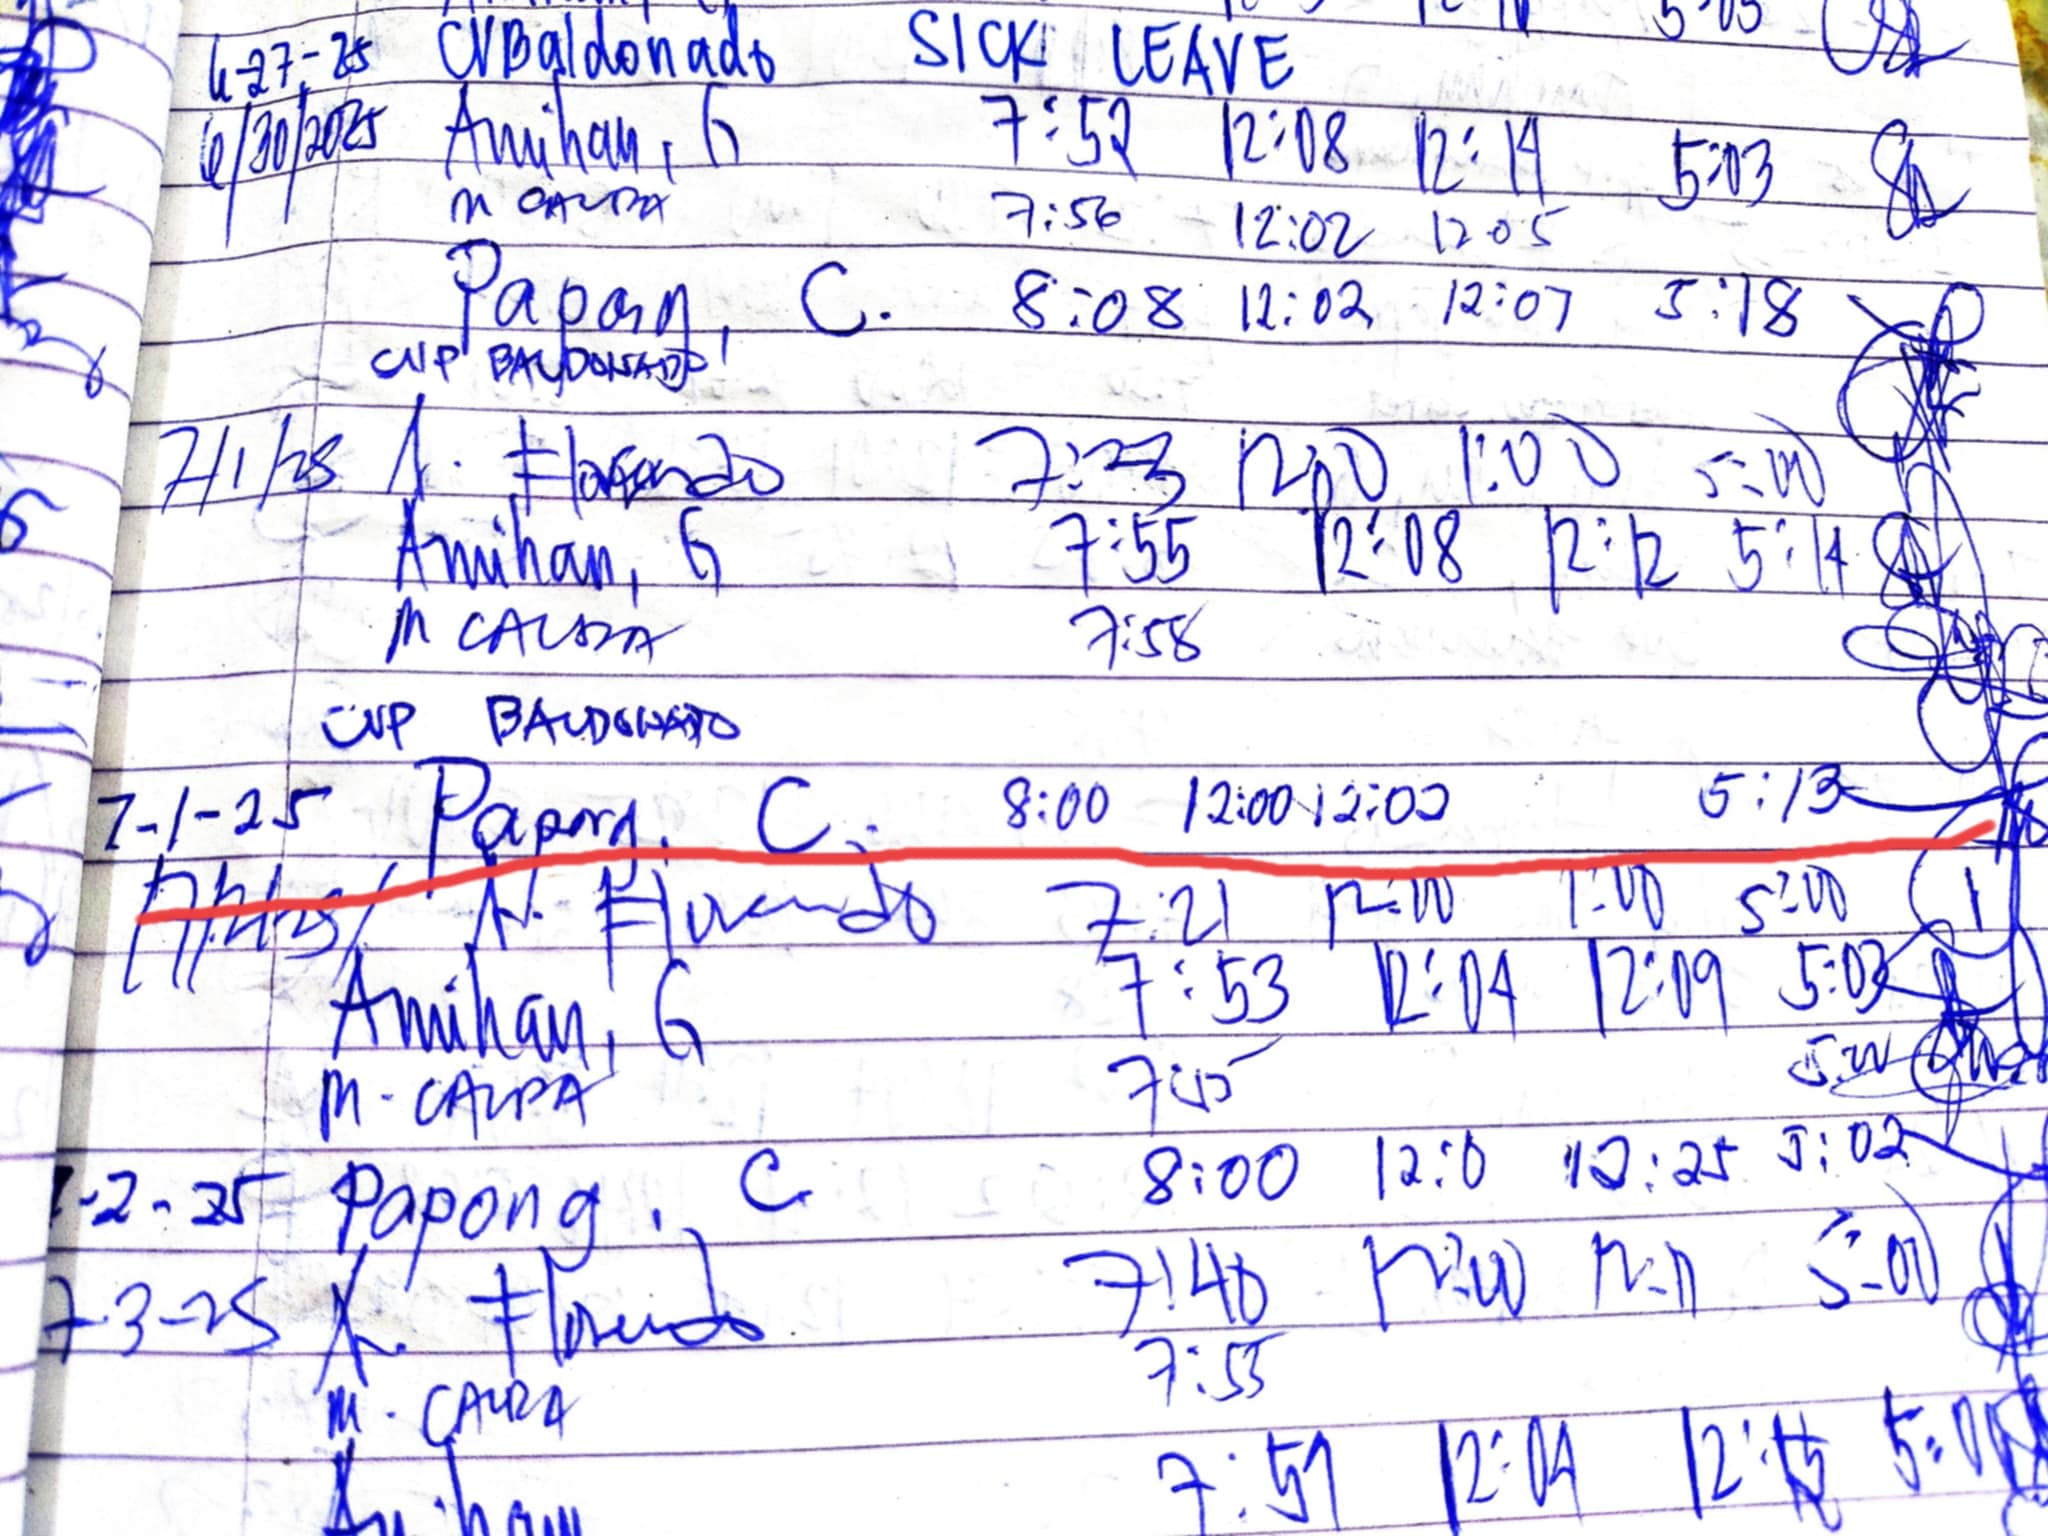 6-27-25 CVBaldonado SICK LEAVE
6/30/2025 Amihan, G 7:52 12:08 12:14 5:03
M CALDA 7:56 12:02 12:05
Papong, C. 8:08 12:02 12:07 5:18
CVP BALDONADO
7/1/25 N. Florendo 7:23 12:00 1:00 5:00
Amihan, G 7:55 12:08 12:12 5:14
M CALDA 7:58
CVP BALDONADO
7-1-25 Papong, C. 8:00 12:00 12:02 5:13
N. Florendo 7:21 12:00 1:00 5:00
Amihan, G 7:53 12:04 12:09 5:03
M. CALDA 7:55 5:00
-2-25 Papong, C. 8:00 12:0 12:25 5:02
7-3-25 N. Florendo 7:40 12:00 12:11 5:00
M. CALDA 7:55
Amihan 7:59 12:04 12:15